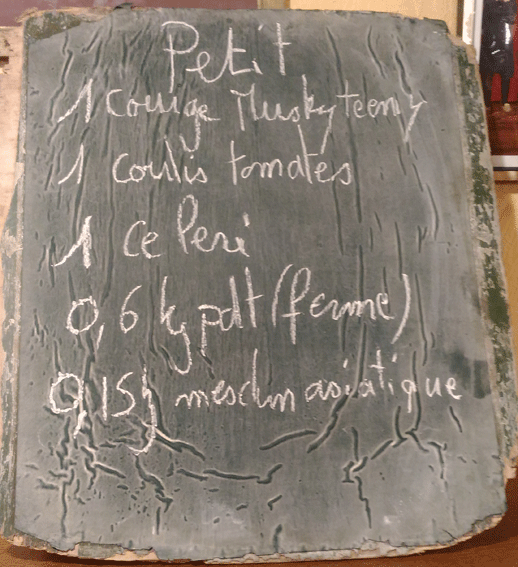 Petit
1 courge Muskyteeny
1 coulis tomates
1 Celeri
0,6 kg pdt (ferme)
0,15 mesclun asiatique